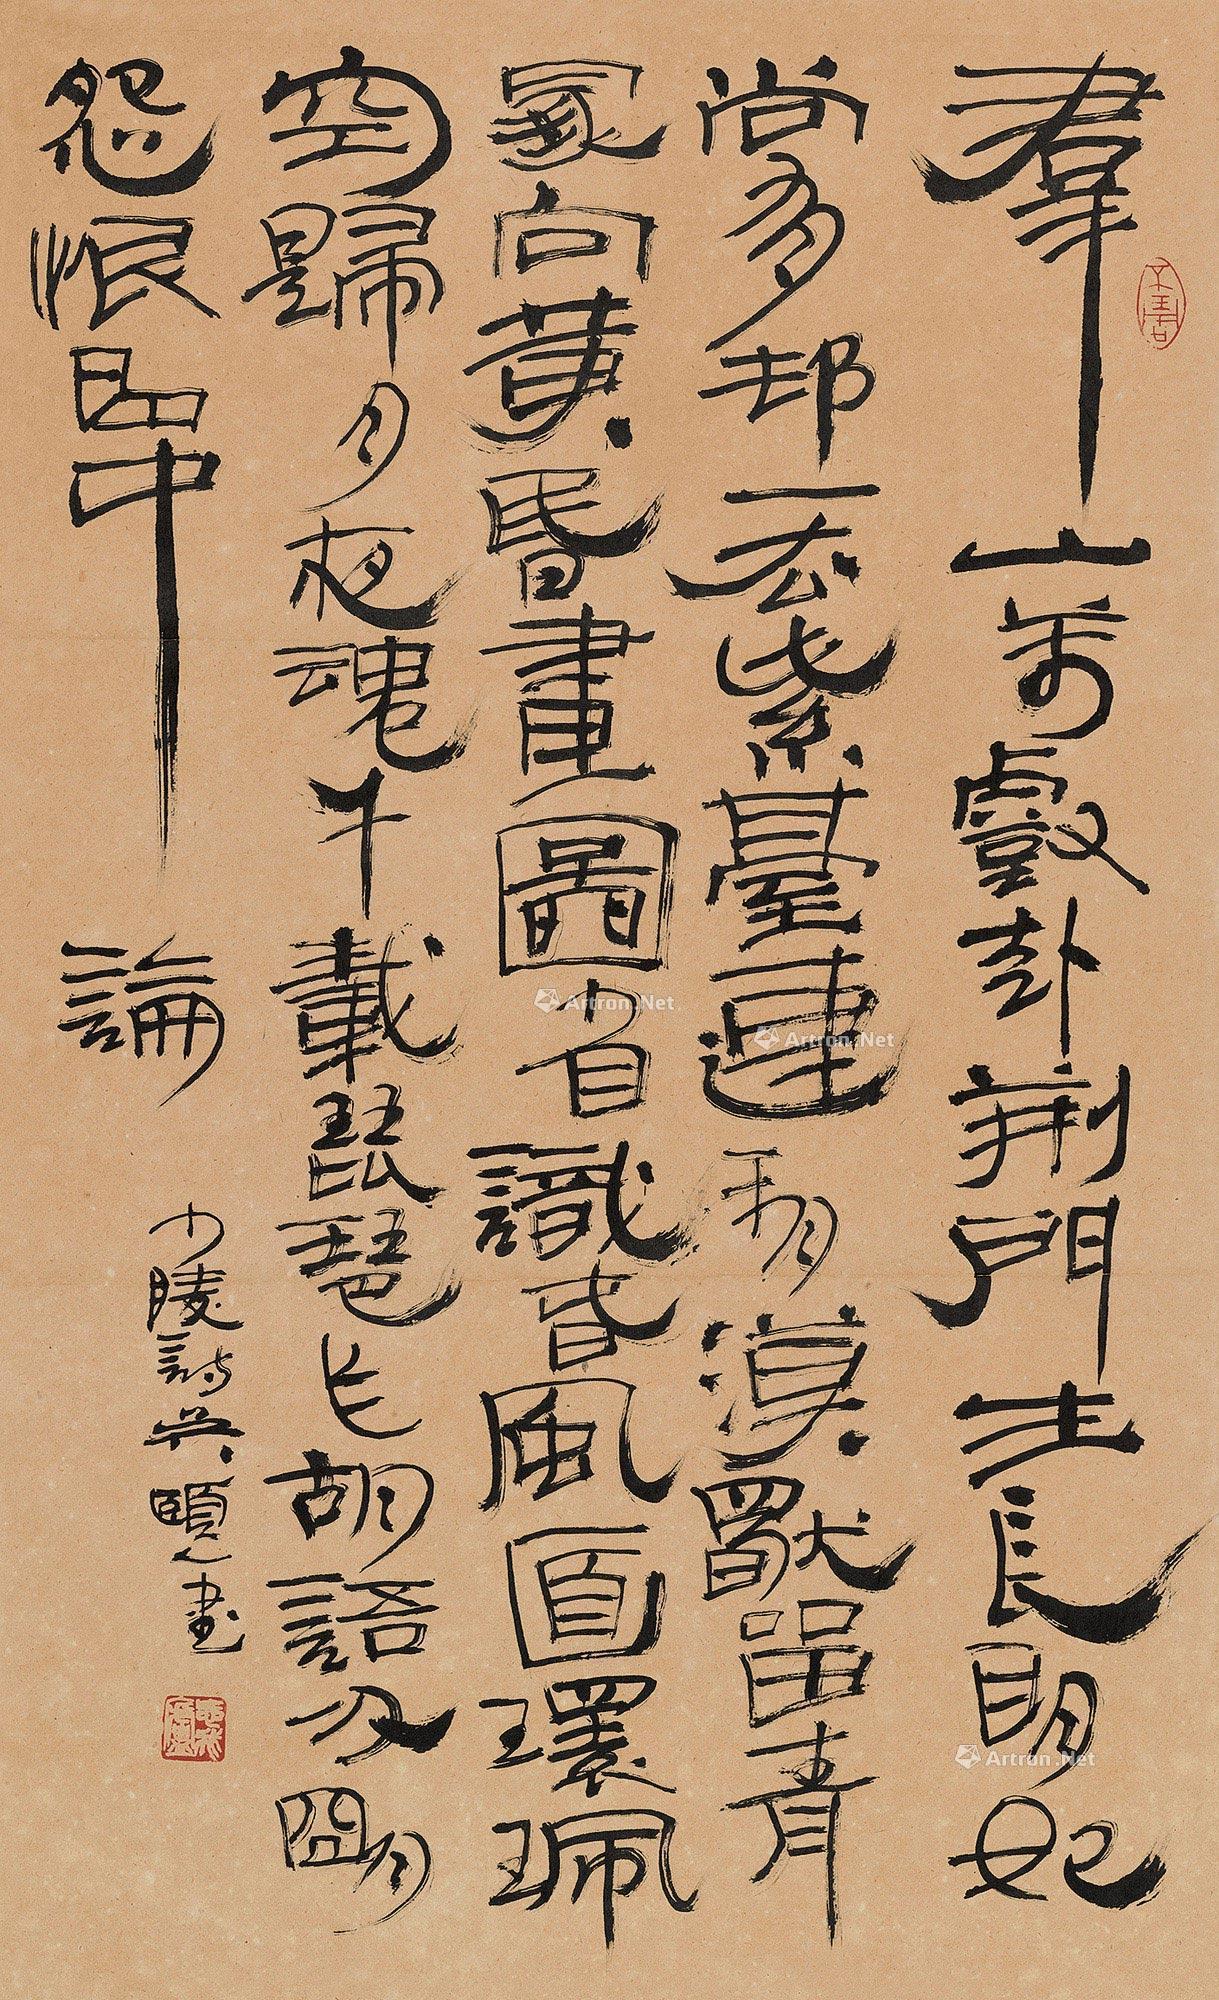 羣山万壑赴荊門生長明妃
尚有邨一去紫臺連朔漠獨留青
冢向黃昏畫圖省識春風面環珮
空歸月夜魂千載琵琶乍胡語分明
怨恨曲中論
少陵詩吳頤人書
Artron.Net
Artron.Net
Artron.Net